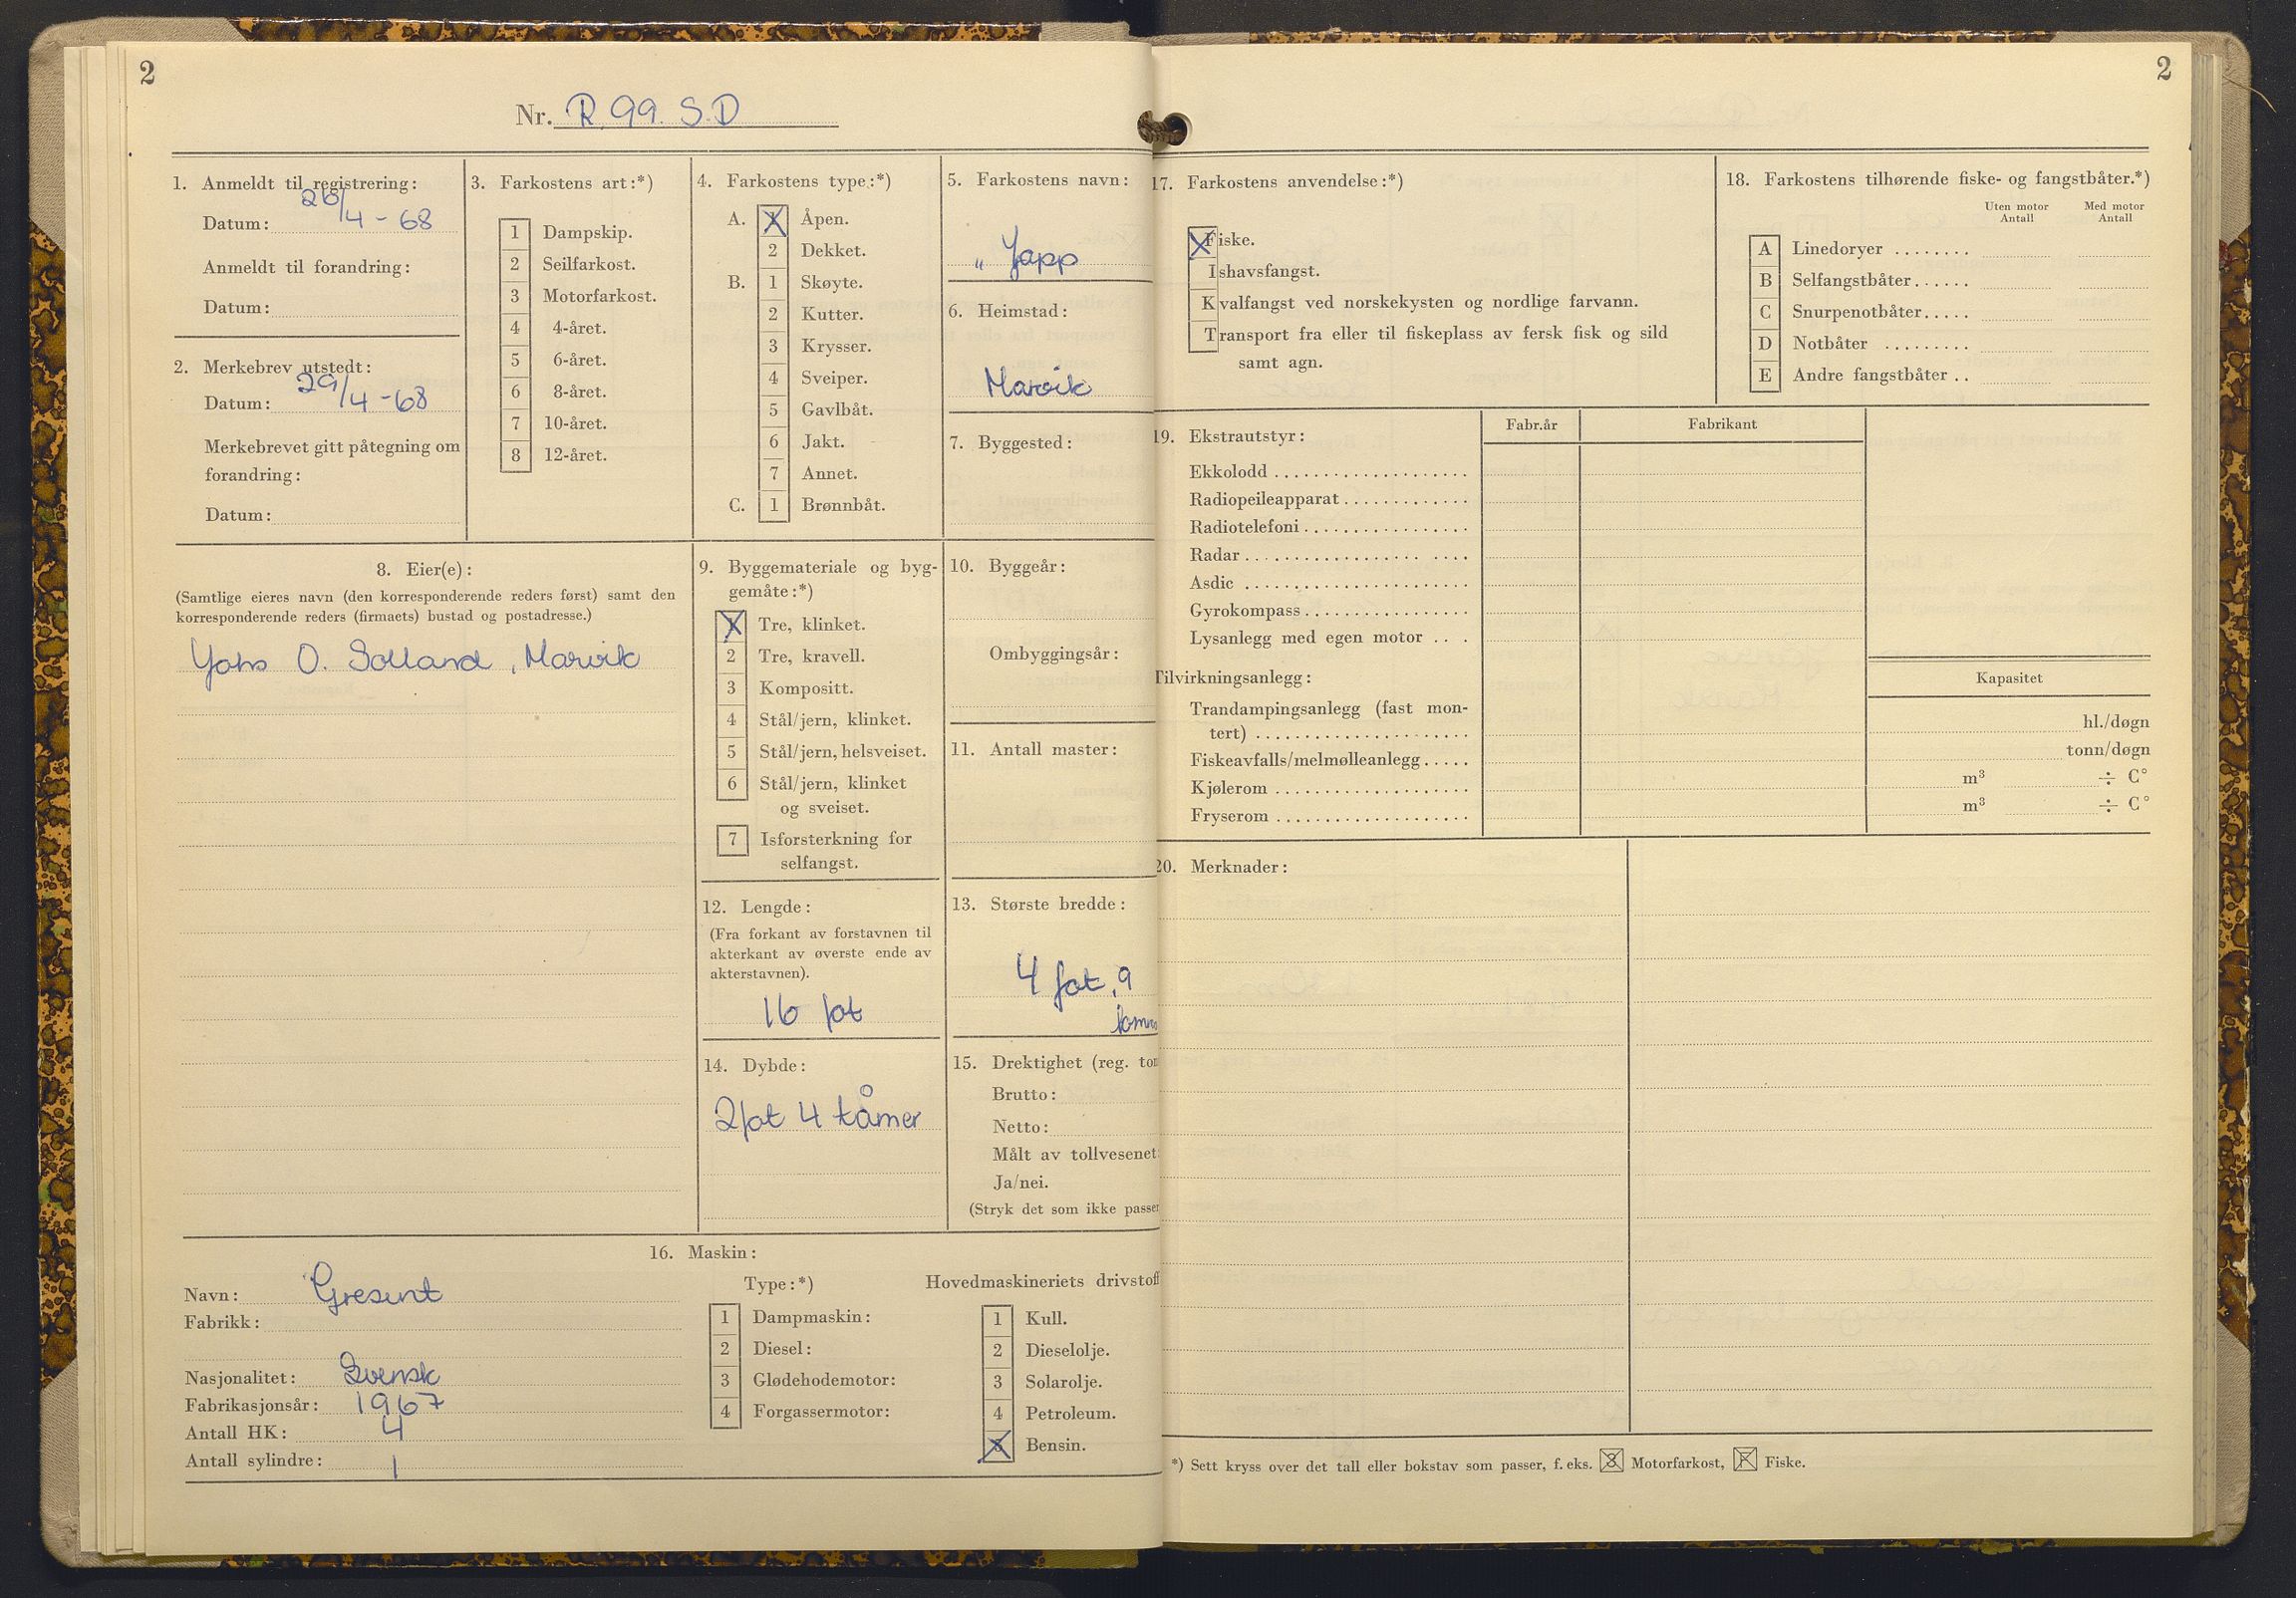 2
Nr. R. 99. S.D
1. Anmeldt til registrering:
Datum: 26/4 - 68
Anmeldt til forandring:
Datum:
2. Merkebrev utstedt:
Datum: 29/4 - 68
Merkebrevet gitt påtegning om
forandring:
Datum:
3. Farkostens art:*)
1 Dampskip.
2 Seilfarkost.
3 Motorfarkost.
4 4-året.
5 6-året.
6 8-året.
7 10-året.
8 12-året.
4. Farkostens type:*)
A. X Åpen.
2 Dekket.
B. 1 Skøyte.
2 Kutter.
3 Krysser.
4 Sveiper.
5 Gavlbåt.
6 Jakt.
7 Annet.
C. 1 Brønnbåt.
5. Farkostens navn:
" Japp
6. Heimstad:
Marvik
7. Byggested:
8. Eier(e):
(Samtlige eieres navn (den korresponderende reders først) samt den
korresponderende reders (firmaets) bustad og postadresse.)
O. Solland, Marvik
9. Byggemateriale og byg-
gemåte:*)
X Tre, klinket.
2 Tre, kravell.
3 Kompositt.
4 Stål/jern, klinket.
5 Stål/jern, helsveiset.
6 Stål/jern, klinket
og sveiset.
7 Isforsterkning for
selfangst.
10. Byggeår:
Ombyggingsår:
11. Antall master:
12. Lengde:
(Fra forkant av forstavnen til
akterkant av øverste ende av
akterstavnen).
16 fot
13. Største bredde:
4 fot, 9
14. Dybde:
2 fot 4 tåmer
15. Drektighet (reg. ton
Brutto:
Netto:
Målt av tollvesenet:
Ja/nei.
(Stryk det som ikke passer
16. Maskin:
Navn: Gresent
Fabrikk:
Nasjonalitet: Svensk
Fabrikasjonsår: 1967
Antall HK: 4
Antall sylindre: 1
Type:*)
1 Dampmaskin:
2 Diesel:
3 Glødehodemotor:
4 Forgassermotor:
Hovedmaskineriets drivstoff
1 Kull.
2 Dieselolje.
3 Solarolje.
4 Petroleum.
5 Bensin.
2
17. Farkostens anvendelse:*)
Fiske.
Ishavsfangst.
Kvalfangst ved norskekysten og nordlige farvann.
Transport fra eller til fiskeplass av fersk fisk og sild
samt agn.
18. Farkostens tilhørende fiske- og fangstbåter.*)
Uten motor Med motor
Antall Antall
A Linedoryer ........
B Selfangstbåter......
C Snurpenotbåter.....
D Notbåter .........
E Andre fangstbåter ..
19. Ekstrautstyr:
Fabr.år Fabrikant
Ekkolodd ...................
Radiopeileapparat ............
Radiotelefoni ................
Radar ......................
Asdic ......................
Gyrokompass ................
Lysanlegg med egen motor ...
Tilvirkningsanlegg:
Kapasitet
Trandampingsanlegg (fast mon-
tert) ...................... hl./døgn
Fiskeavfalls/melmølleanlegg ..... tonn/døgn
Kjølerom ................... m³ ÷ C°
Fryserom ................... m³ ÷ C°
20. Merknader:
*) Sett kryss over det tall eller bokstav som passer, f. eks. 3 Motorfarkost, F Fiske.